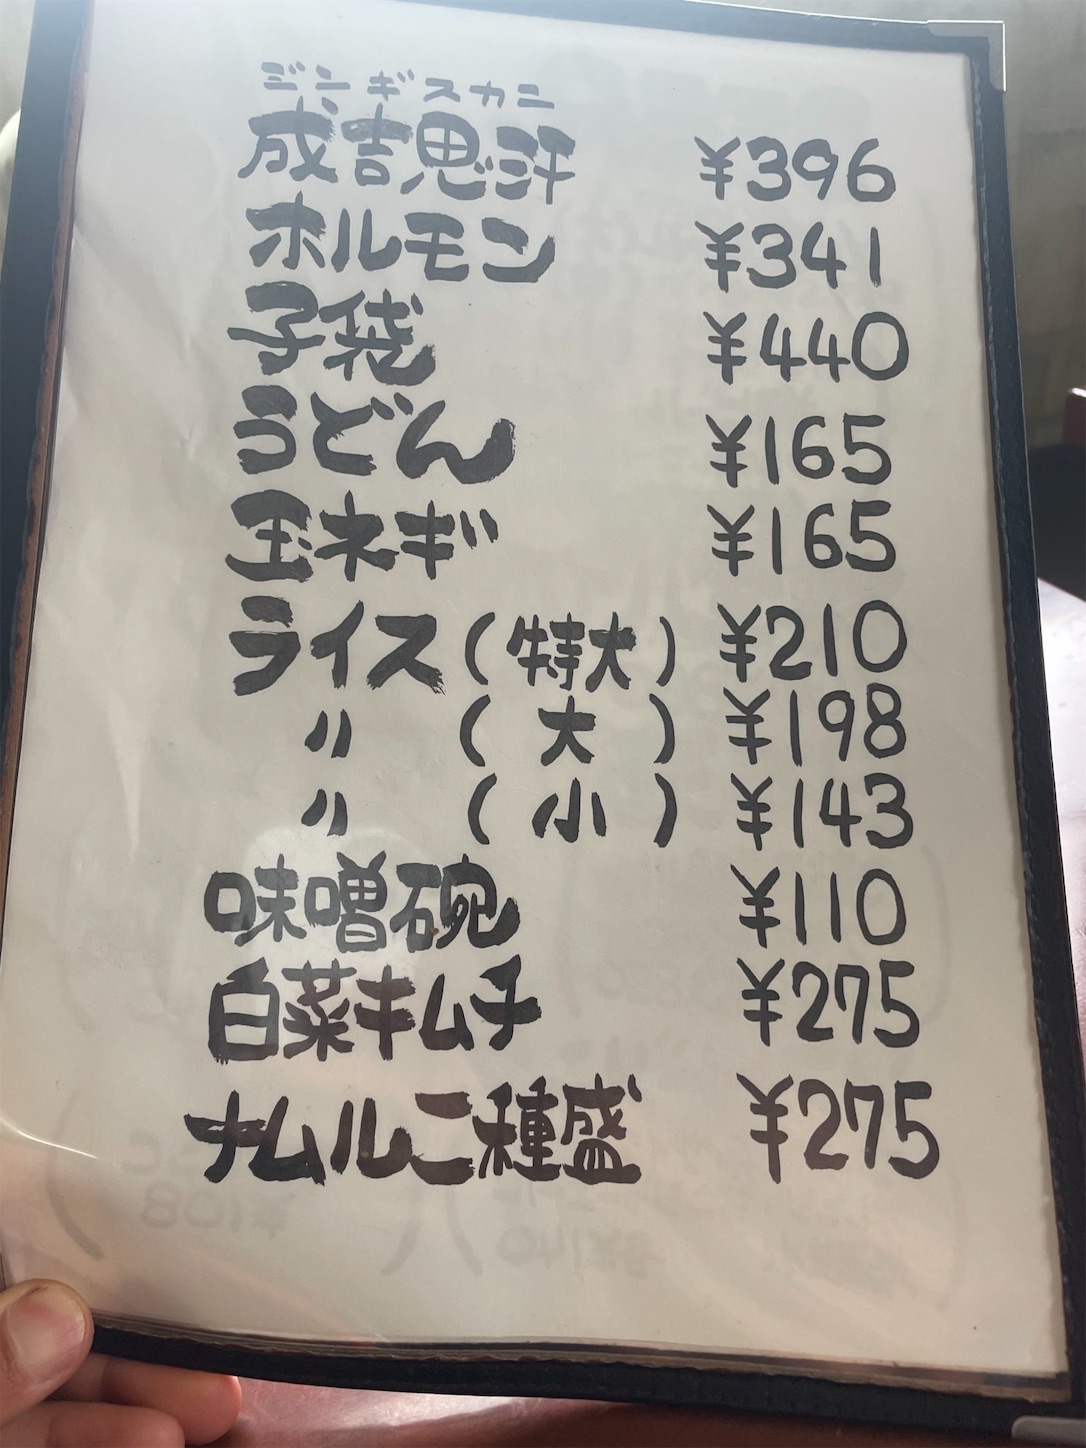 ジンギスカン
成吉思汗 ¥396
ホルモン ¥341
子袋 ¥440
うどん ¥165
玉ネギ ¥165
ライス(特大) ¥210
〃(大) ¥198
〃(小) ¥143
味噌碗 ¥110
白菜キムチ ¥275
ナムル二種盛 ¥275